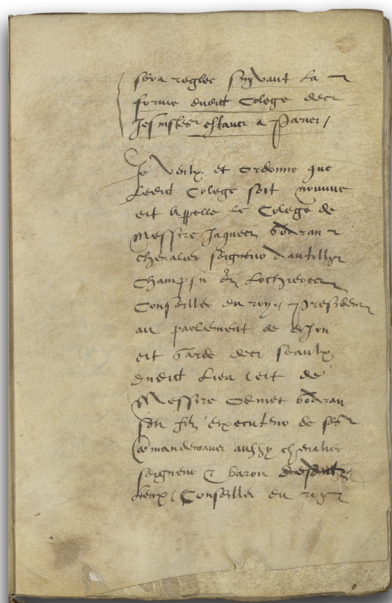 sera reglee suyvant la
forme dudict Colege des
Jesuistes estant a Paris /
Je veulx et ordonne que
Ledict Colege soit nomme
et Appelle le Colege de
Messire Jaques Godran
chevalier seigneur d'antilly
Champseu &
Conseiller du roy, President
au parlement de dijon
et Garde des seaulx
dudict lieu et de
Messire Odinet Godran
son filz executeur de ses
Commandemens aussy chevalier
seigneur & baron desdictz
Lieux Conseiller du roy